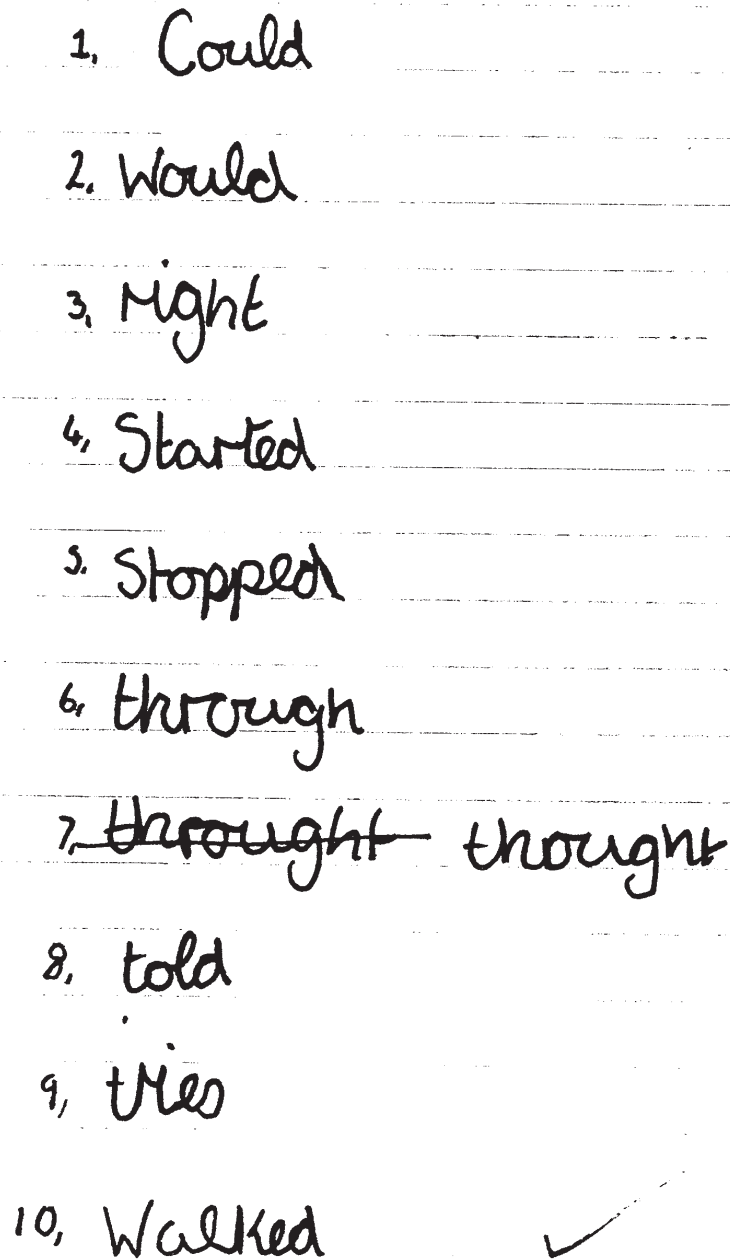 1, Could
2, Would
3, right
4, Started
5. Stopped
6, through
7, throught thought
8, told
9, tries
10, Walked